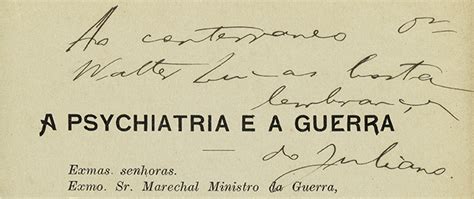 Ao conterraneo Dr
Walter Lucas Costa
lembrança
A PSYCHIATRIA E A GUERRA
do Juliano.
Exmas. senhoras.
Exmo. Sr. Marechal Ministro da Guerra,